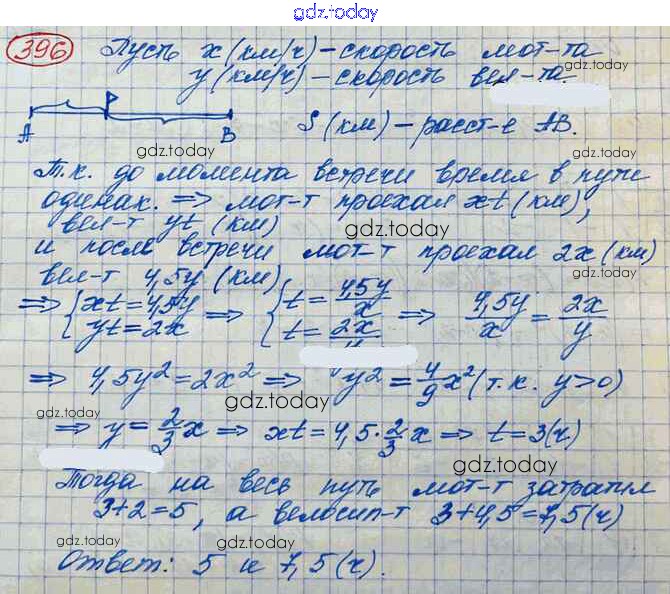 gdz.today
396 Пусть x (км/ч) – скорость мот-та
gdz.today
y (км/ч) – скорость вел-та.
A P B S (км) – расст-е AB.
gdz.today
gdz.today
Т.к. до момента встречи время в пути
одинак. ⇒ мот-т проехал xt (км),
вел-т yt (км)
gdz.today
и после встречи мот-т проехал 2x (км)
вел-т 4,5y (км)
gdz.today
⇒ { xt = 4,5y ⇒ { t = 4,5y/x ⇒ 4,5y/x = 2x/y
yt = 2x t = 2x/
⇒ 4,5y² = 2x² ⇒ y² = 4/9 x² (т.к. y>0)
gdz.today
gdz.today
gdz.today
⇒ y = 2/3 x ⇒ xt = 4,5 · 2/3 x ⇒ t = 3 (ч)
gdz.today
Тогда на весь путь мот-т затратил
3+2=5, а велосип-т 3+4,5=7,5 (ч)
gdz.today
gdz.today
gdz.today
Ответ: 5 и 7,5 (ч).